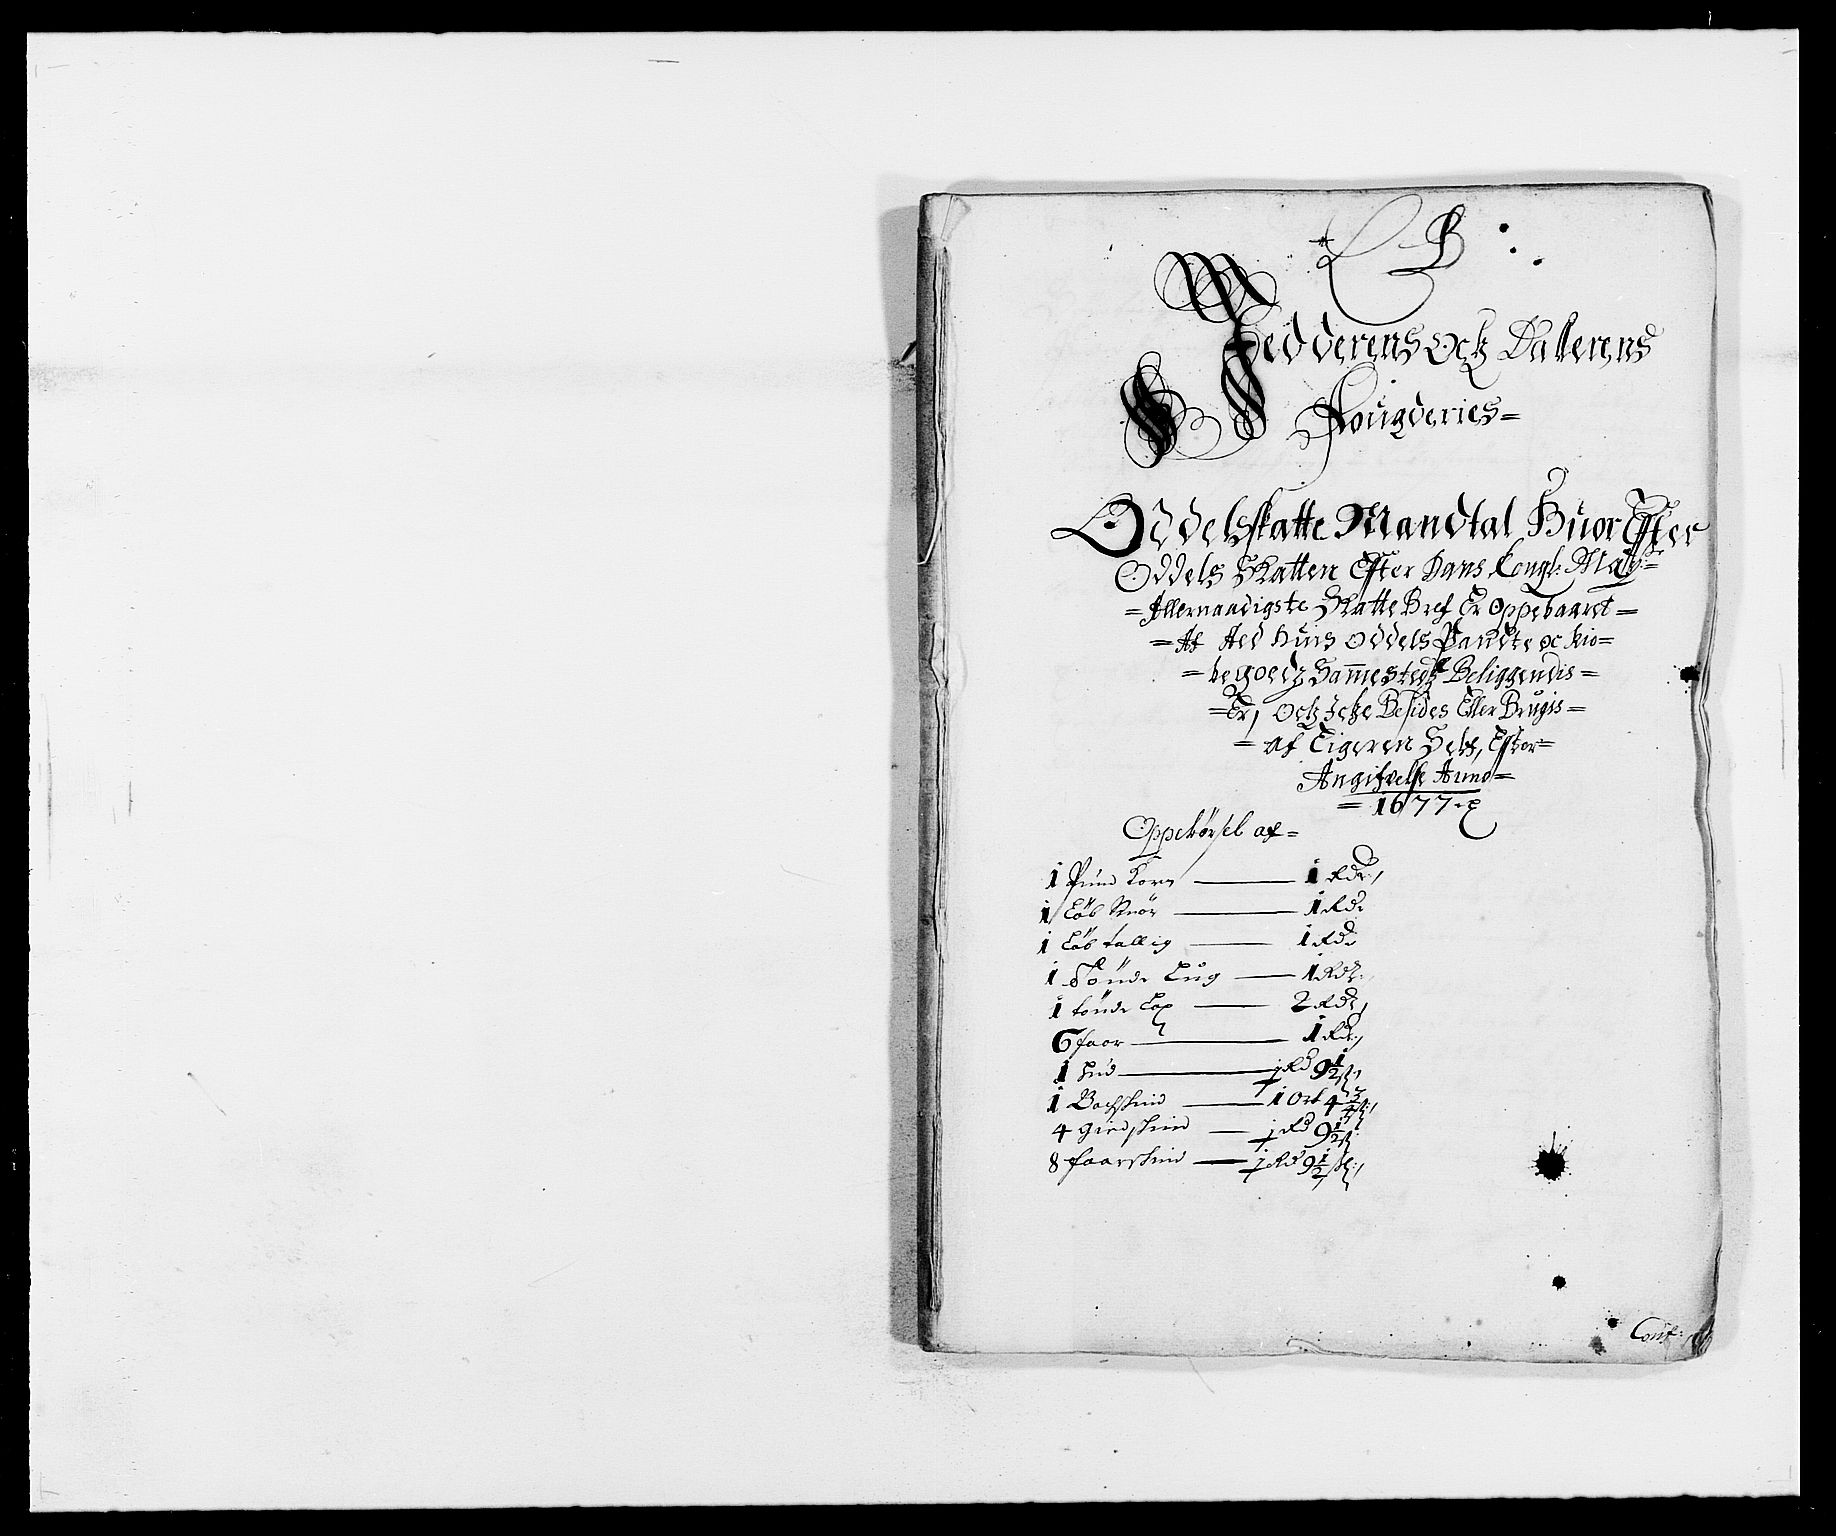 L B
Jedderens Ock Dalerens
Fougderies=
Oddelskatte Mandtal Huor Efter
Oddels Skatten Efter Hans Kongl: May:=
=Allernaadigste Skatte Bref Er oppebaaret=
=Af Aed huis oddels Pandte oc kio=
=be goedz Sammestedtz Beliggendis=
=Er, Ock Icke Besides Eller Brugis=
=af Eigeren Self, Efter=
Angifvelse Anno=
=1677.
Oppebörsel af=
1 Pund Korn — 1 Rdr,
1 Löb Smör — 1 Rdr
1 Löb tallig — 1 Rdr
1 Tönde Lug — 1 Rdr:
1 tönde Lax — 2 Rdr,
6 faar — 1 Rdr,
1 Hud — ½ Rd 9½ ß,
1 Bochskind — 1 Ort 4¾ ß,
4 giedskind — ½ Rd 9½ ß
8 faarskind — ½ Rd 9½ ß:,
Conf: